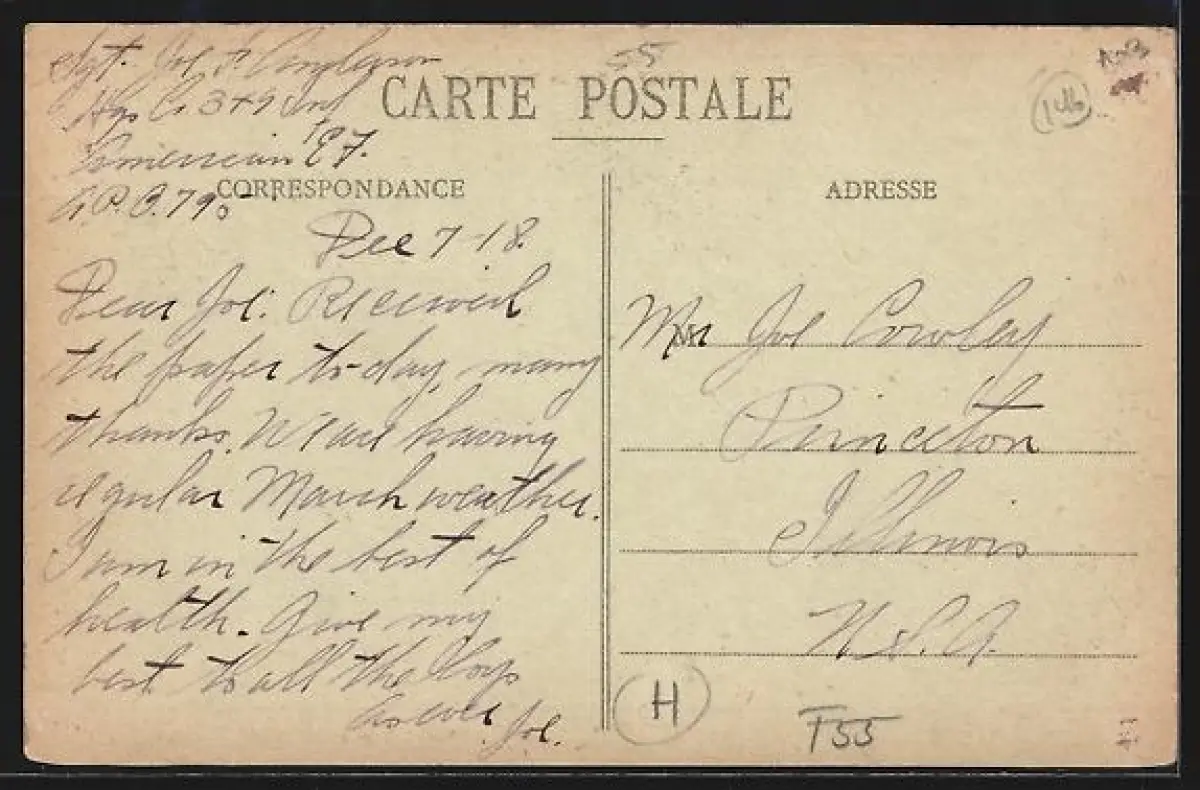 Sgt. Joe F.
Hqs Co 349 Inf
American E F.
A.P.O. 795
55
146
CARTE POSTALE
CORRESPONDANCE
Dec 7-18.
Dear Joe: Received
the paper to-day, many
thanks. We are having
regular March weather.
I am in the best of
health. Give my
best to all the boys
As ever Joe.
ADRESSE
Mr Joe Cowley
Princeton
Illinois
U.S.A.
H
T55